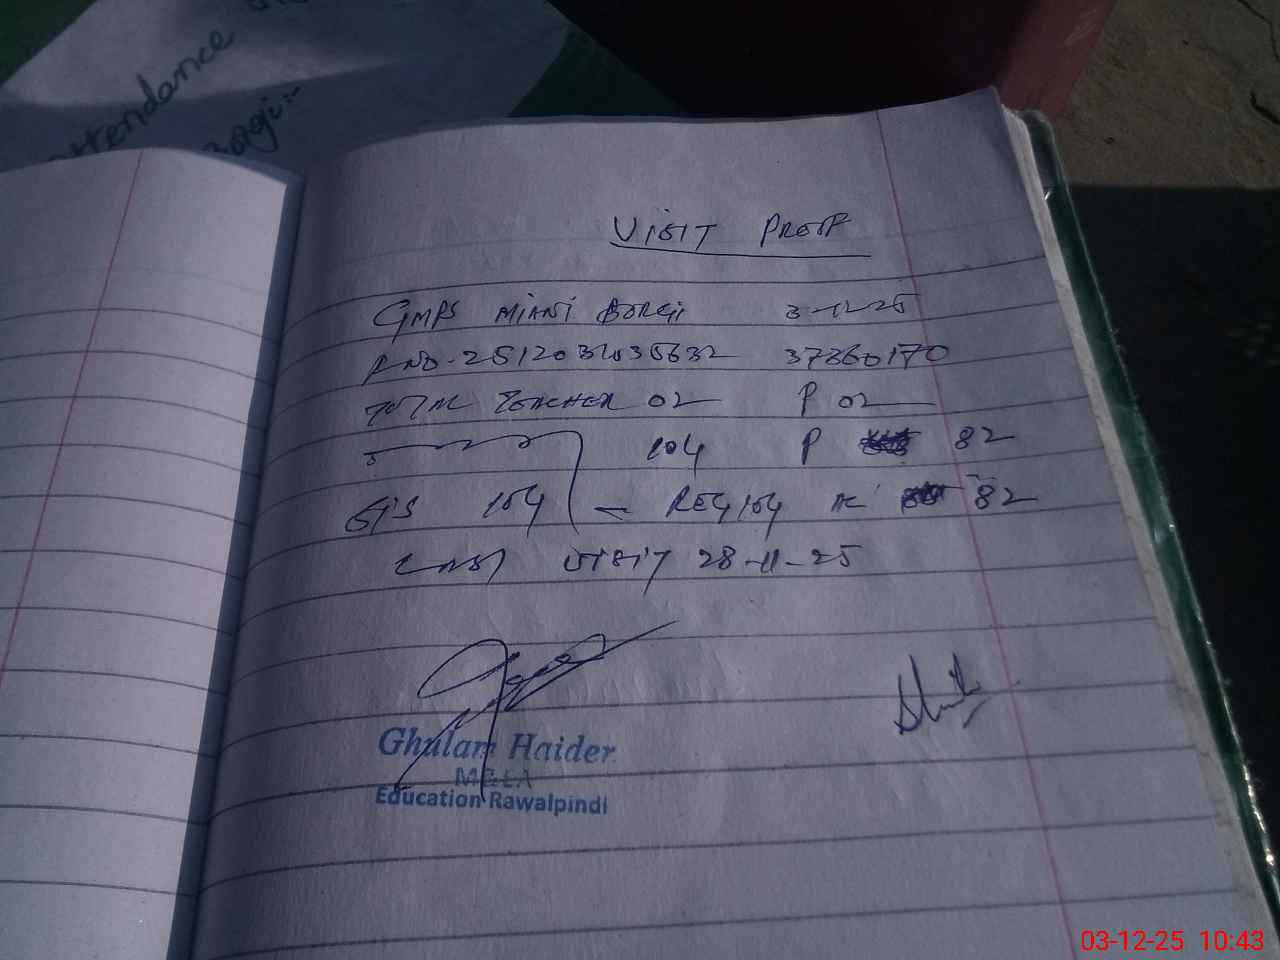 attendance
Borgi:-
VISIT PROOF
GMPS MIANI BORGI 3-12-25
R NO. 2512031035632 37360170
TOTAL TEACHER 02 P 02
104 P 82
SIS 104 - REG 104 82
LAST VISIT 28-11-25
Ghulam Haider
M&EA
Education Rawalpindi
03-12-25 10:43